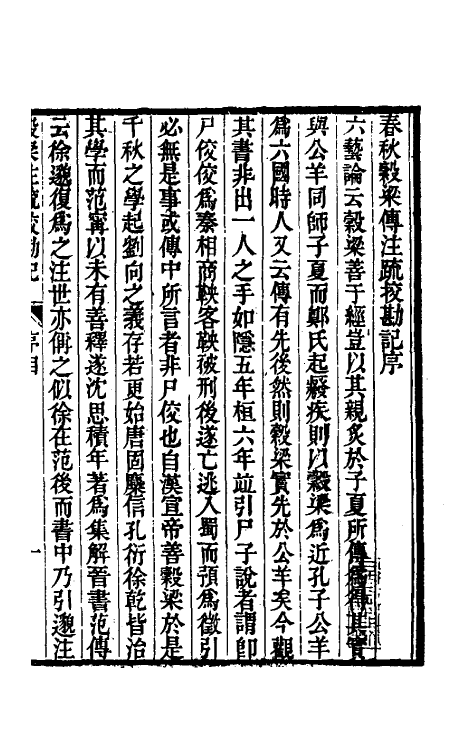 春秋穀梁傳注疏挍勘記序
六藝論云穀梁善于經豈以其親炙於子夏所傳爲得其實
與公羊同師子夏而鄭氏起癈疾則以穀梁爲近孔子公羊
爲六國時人又云傳有先後然則穀梁實先於公羊矣今觀
其書非出一人之手如隱五年桓六年竝引尸子說者謂卽
尸佼佼爲秦相商鞅客鞅被刑後遂亡逃入蜀而預爲徵引
必無是事或傳中所言者非尸佼也自漢宣帝善穀梁於是
千秋之學起劉向之義存若更始唐固麋信孔衍徐乾皆治
其學而范甯以未有善釋遂沈思積年著爲集解晉書范傳
云徐邈復爲之注世亦偁之似徐在范後而書中乃引邈注
穀梁注疏挍勘記 序目 一